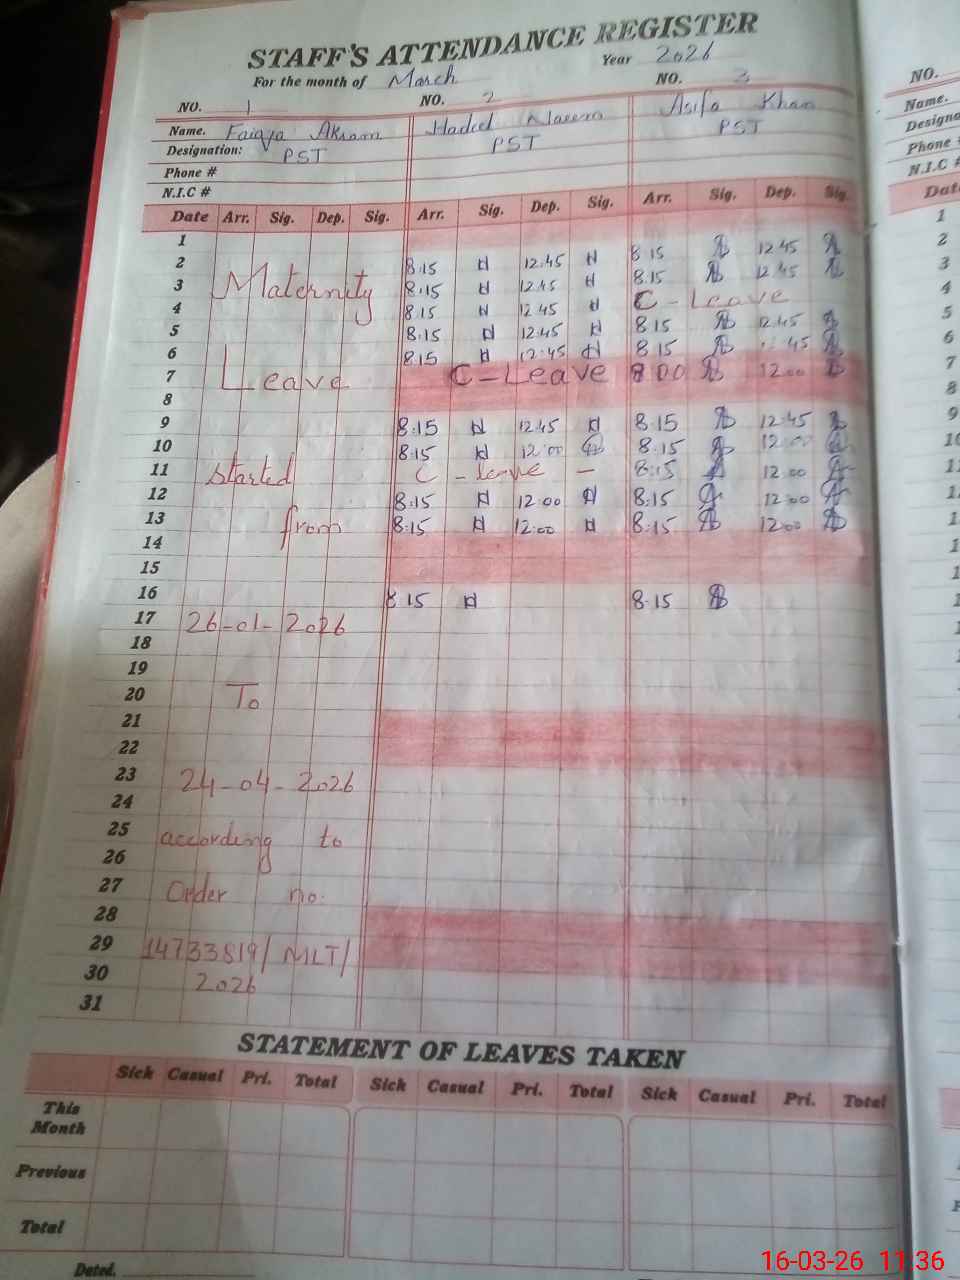 STAFF'S ATTENDANCE REGISTER
For the month of March Year 2026
NO. 1 NO. 2 NO. 3 NO.
Name. Faiqa Akram Hadeed Naeem Asifa Khan Name.
Designation: PST PST PST
Phone #
N.I.C #
Date Arr. Sig. Dep. Sig. Arr. Sig. Dep. Sig. Arr. Sig. Dep. Sig.
1
2 8:15 12:45 8:15 12:45
3 Maternity 8:15 12:45 8:15 12:45
4 8:15 12:45 C-Leave
5 8:15 12:45 8:15 12:45
6 8:15 12:45 8:15 12:45
7 Leave C-Leave 8:00 12:00
8
9 8:15 12:45 8:15 12:45
10 8:15 12:00 8:15 12:00
11 Started C-leave - 8:15 12:00
12 8:15 12:00 8:15 12:00
13 from 8:15 12:00 8:15 12:00
14
15
16 8:15 8:15
17 26-01-2026
18
19
20 To
21
22
23 24-04-2026
24
25 according to
26
27 Order no.
28
29 14733819/MLT/
30 2026
31
STATEMENT OF LEAVES TAKEN
Sick Casual Pri. Total Sick Casual Pri. Total Sick Casual Pri. Total
This Month
Previous
Total
Dated.
16-03-26 11:36